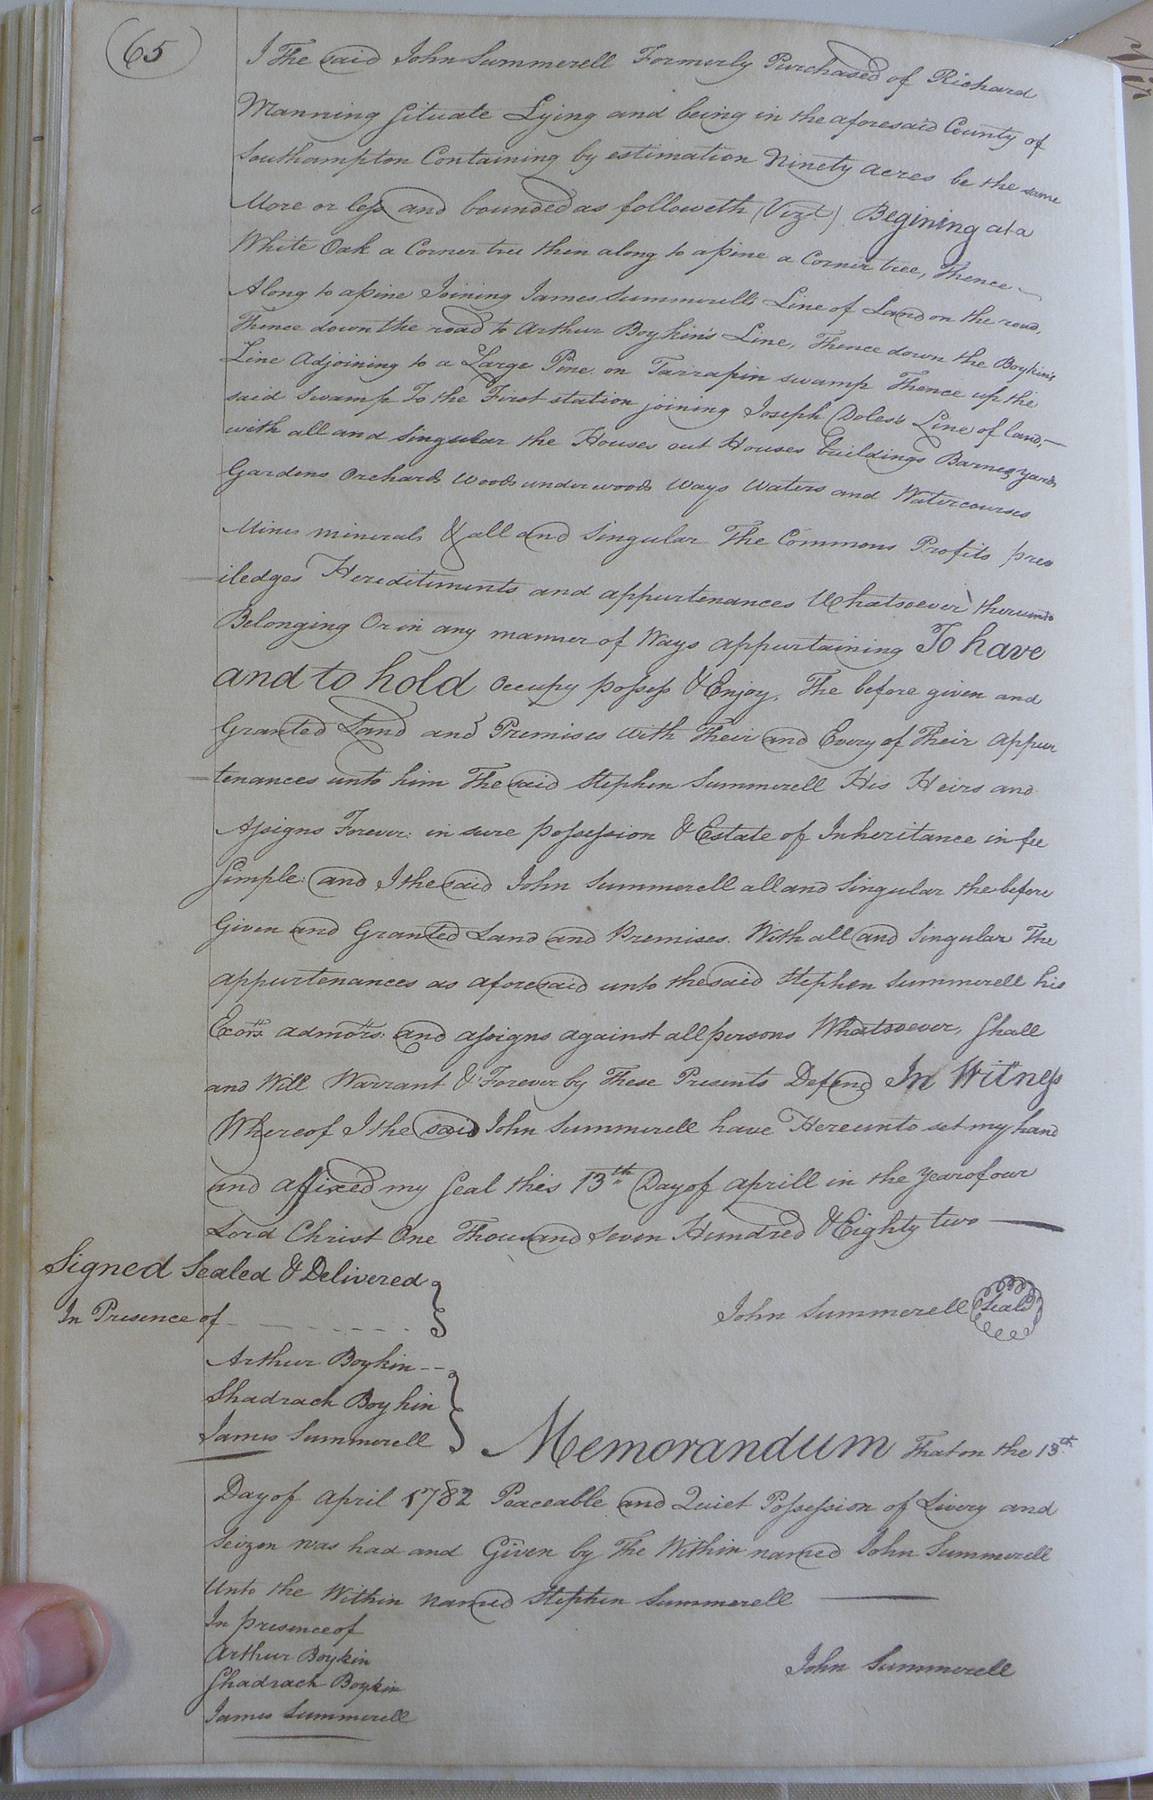 65
I The said John Summerell Formerly Purchased of Richard
Manning Situate Lying and being in the aforesaid County of
Southampton Containing by estimation Ninety acres be the same
More or less and bounded as followeth (Vizt) Begining at a
White Oak a Corner tree then along to a pine a Corner tree, Thence
Along to a pine Joining James Summerell's Line of Land on the road,
Thence down the road to Arthur Boykin's Line, Thence down the Boykin's
Line Adjoining to a Large Pine on Tarrapin swamp Thence up the
said Swamp To the First station joining Joseph Doles's Line of land,
with all and Singular the Houses out Houses buildings Barnes, yards
Gardens Orchards Woods underwoods Ways Waters and Watercourses
Mines minerals & all and Singular The Commons Profits prev
iledges Hereditiments and appurtenances Whatsoever thereunto
Belonging Or in any manner of Ways appurtaining To have
and to hold occupy possess & Enjoy, The before given and
Granted Land and Premises with Their and Every of Their appur
tenances unto him The said Stephen Summerell His Heirs and
Assigns Forever: in sure possession & Estate of Inheritance in fee
Simple: and I the said John Summerell all and Singular the before
Given and Granted Land and Premises. With all and Singular The
appurtenances as aforesaid unto the said Stephen Summerell his
Exors. admors. and assigns against all persons Whatsoever, Shall
and Will Warrant & Forever by These Presents Defend In Witness
Whereof I the said John Summerell have Hereunto set my hand
and affixed my Seal this 13th Day of Aprill in the Year of our
Lord Christ One Thousand Seven Hundred & Eighty two
Signed Sealed & Delivered
In Presence of
John Summerell Seal
Arthur Boykin
Shadrach Boykin
James Summerell
Memorandum That on the 13th
Day of April 1782 Peaceable and Quiet Possession of Livery and
Seizen was had and Given by The Within named John Summerell
Unto the Within named Stephen Summerell
In presence of
Arthur Boykin
John Summerell
Shadrach Boykin
James Summerell